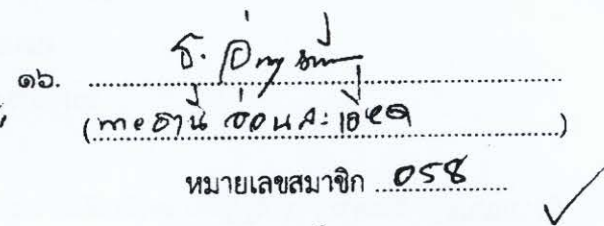 ๑๖.
(นายธานี อ่อนละเอียด)
หมายเลขสมาชิก 058